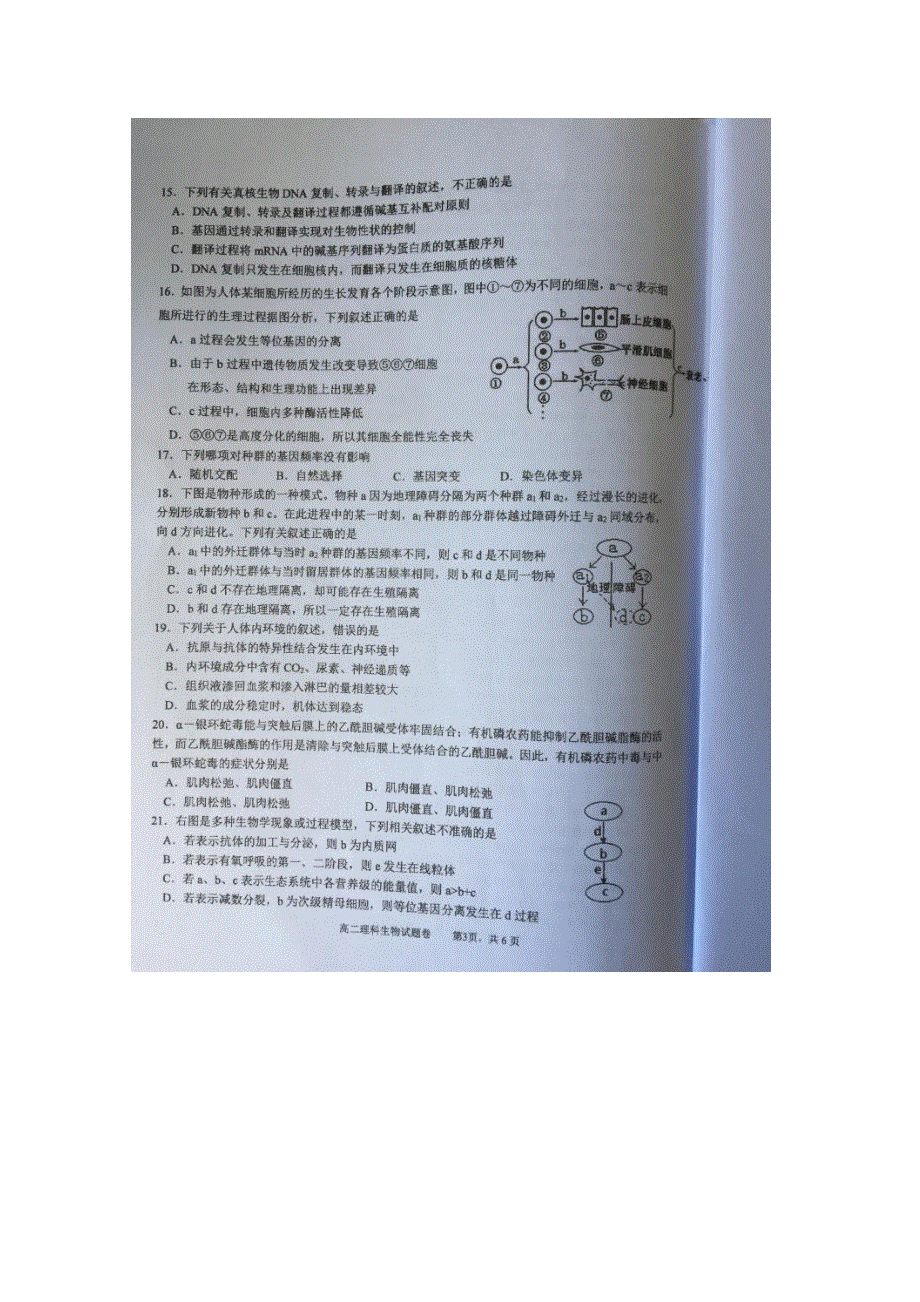 15．下列有关真核生物 DNA 复制、转录与翻译的叙述，不正确的是
A．DNA 复制、转录及翻译过程都遵循碱基互补配对原则
B．基因通过转录和翻译实现对生物性状的控制
C．翻译过程将 mRNA 中的碱基序列翻译为蛋白质的氨基酸序列
D．DNA 复制只发生在细胞核内，而翻译只发生在细胞质的核糖体
16．如图为人体某细胞所经历的生长发育各个阶段示意图，图中①～⑦为不同的细胞，a～c 表示细
胞所进行的生理过程据图分析，下列叙述正确的是
A．a 过程会发生等位基因的分离
B．由于 b 过程中遗传物质发生改变导致⑤⑥⑦细胞
在形态、结构和生理功能上出现差异
C．c 过程中，细胞内多种酶活性降低
D．⑤⑥⑦是高度分化的细胞，所以其细胞全能性完全丧失
① a
② b ⑤ 肠上皮细胞
③ b ⑥ 平滑肌细胞
④ b ⑦ 神经细胞
c 衰老、
17．下列哪项对种群的基因频率没有影响
A．随机交配 B．自然选择 C．基因突变 D．染色体变异
18．下图是物种形成的一种模式。物种 a 因为地理障碍分隔为两个种群 a₁ 和 a₂，经过漫长的进化，
分别形成新物种 b 和 c。在此进程中的某一时刻，a₁ 种群的部分群体越过障碍外迁与 a₂ 同域分布，
向 d 方向进化。下列有关叙述正确的是
A．a₁ 中的外迁群体与当时 a₂ 种群的基因频率不同，则 c 和 d 是不同物种
B．a₁ 中的外迁群体与当时留居群体的基因频率相同，则 b 和 d 是同一物种
C．c 和 d 不存在地理隔离，却可能存在生殖隔离
D．b 和 d 存在地理隔离，所以一定存在生殖隔离
a
a1 a2
地理 障碍
b d c
19．下列关于人体内环境的叙述，错误的是
A．抗原与抗体的特异性结合发生在内环境中
B．内环境成分中含有 CO₂、尿素、神经递质等
C．组织液渗回血浆和渗入淋巴的量相差较大
D．血浆的成分稳定时，机体达到稳态
20．α－银环蛇毒能与突触后膜上的乙酰胆碱受体牢固结合；有机磷农药能抑制乙酰胆碱脂酶的活
性，而乙酰胆碱酯酶的作用是清除与突触后膜上受体结合的乙酰胆碱。因此，有机磷农药中毒与中
α－银环蛇毒的症状分别是
A．肌肉松弛、肌肉僵直 B．肌肉僵直、肌肉松弛
C．肌肉松弛、肌肉松弛 D．肌肉僵直、肌肉僵直
21．右图是多种生物学现象或过程模型，下列相关叙述不准确的是
A．若表示抗体的加工与分泌，则 b 为内质网
B．若表示有氧呼吸的第一、二阶段，则 e 发生在线粒体
C．若 a、b、c 表示生态系统中各营养级的能量值，则 a>b+c
D．若表示减数分裂，b 为次级精母细胞，则等位基因分离发生在 d 过程
a
d
b
e
c
高二理科生物试题卷 第3页，共 6 页